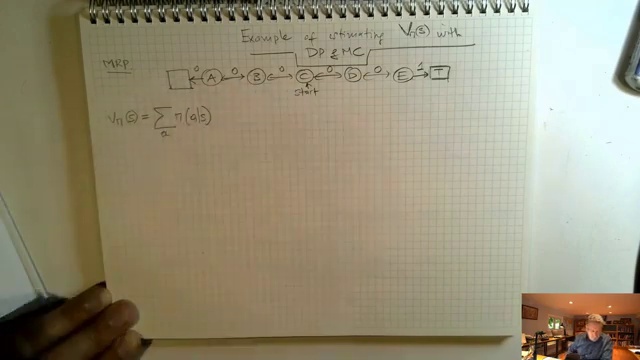 Example of estimating V_π(s) with
DP & MC
MRP
A 0 B 0 C 0 D 0 E 1 T
0
start
V_π(s) = Σ_a π(a|s)